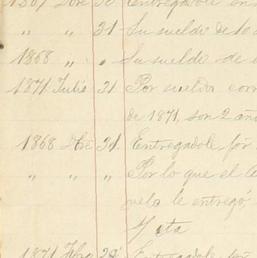 1867 Dbre 30 Entregadole en
" " 31 Su sueldo de 10
1868 " " Su sueldo de
1871 Julio 21 Por sueldo corr
de 1871, son 2 año
1868 Dbre 31 Entregadole por
" " " Por lo que el
le entregó
1871 Entregadole por